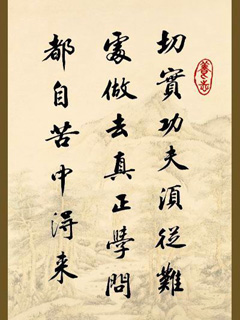 切實功夫須從難
處做去真正學問
都自苦中得来